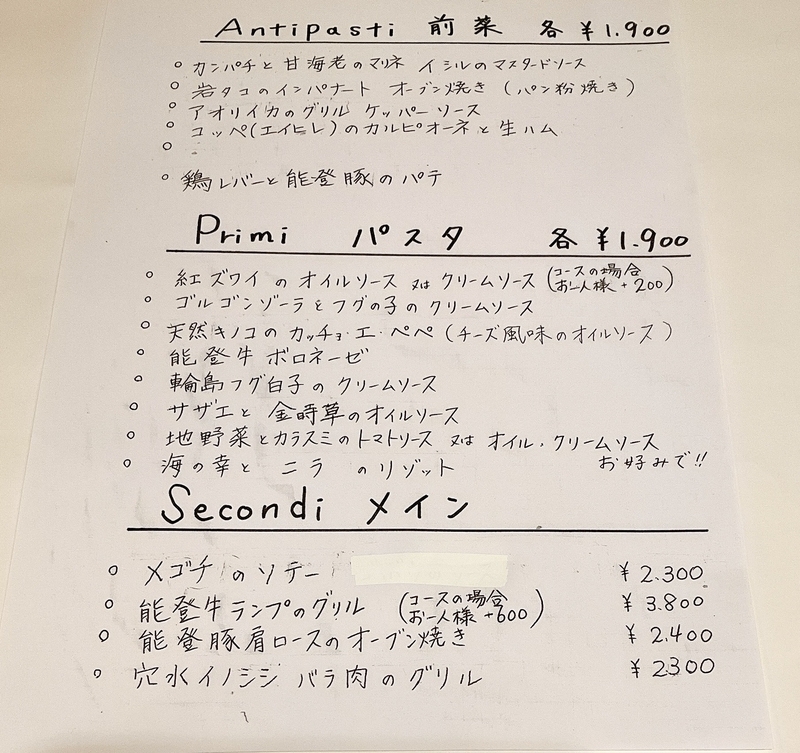 Antipasti 前菜 各 ¥1.900
○ カンパチと甘海老のマリネ イシルのマスタードソース
○ 岩タコのインパナート オーブン焼き (パン粉焼き)
○ アオリイカのグリル ケッパーソース
○ コッペ(エイヒレ)のカルピオーネと生ハム
○
○ 鶏レバーと能登豚のパテ
Primi パスタ 各 ¥1.900
○ 紅ズワイのオイルソース 又は クリームソース (コースの場合 お一人様 +200)
○ ゴルゴンゾーラとフグの子のクリームソース
○ 天然キノコのカッチョ・エ・ペペ (チーズ風味のオイルソース)
○ 能登牛ボロネーゼ
○ 輪島フグ白子のクリームソース
○ サザエと金時草のオイルソース
○ 地野菜とカラスミのトマトソース 又は オイル・クリームソース
お好みで!!
○ 海の幸とニラのリゾット
Secondi メイン
○ メゴチのソテー ¥2.300
○ 能登牛ランプのグリル (コースの場合 お一人様 +600) ¥3.800
○ 能登豚肩ロースのオーブン焼き ¥2.400
○ 穴水イノシシ バラ肉のグリル ¥2300